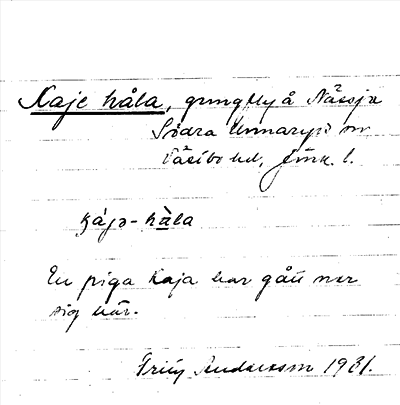 Kaje håla, gungfly å Nässja
Södra Unnaryds sn
Västbo hd, Jönk. l.
kájə-hàla
En piga Kaja har gått ner
sig här.
Frity Andersson 1931.